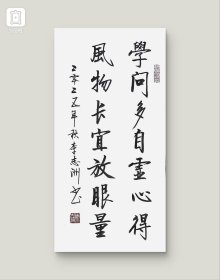 學問多自靈心得
風物长宜放眼量
二零二五年秋李志洲书